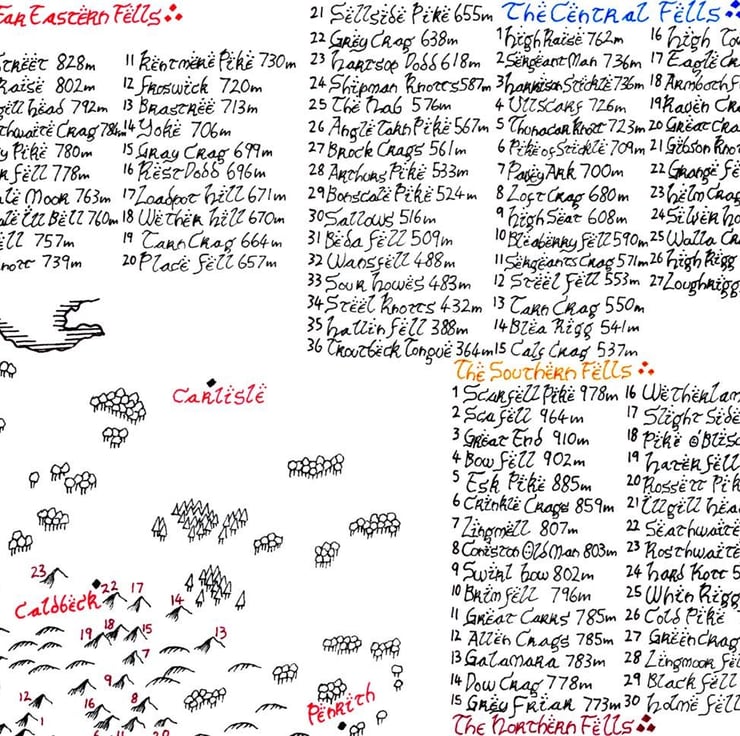 Far Eastern Fells
Street 828m
Raise 802m
Gill Head 792m
Thwaite Crag 784m
Pike 780m
Fell 778m
Moor 763m
Ill Bell 760m
757m
739m
11 Kentmere Pike 730m
12 Froswick 720m
13 Brastree 713m
14 Yoke 706m
15 Gray Crag 699m
16 Rest Dodd 696m
17 Loadpot Hill 671m
18 Wether Hill 670m
19 Tarn Crag 664m
20 Place Fell 657m
21 Sellside Pike 655m
22 Grey Crag 638m
23 Hartsop Dodd 618m
24 Shipman Knotts 587m
25 The Nab 576m
26 Angle Tarn Pike 567m
27 Brock Crags 561m
28 Arthurs Pike 533m
29 Bonscale Pike 524m
30 Sallows 516m
31 Beda Fell 509m
32 Wansfell 488m
33 Sour Howes 483m
34 Steel Knotts 432m
35 Hallin Fell 388m
36 Troutbeck Tongue 364m
The Central Fells
1 High Raise 762m
2 Sergeant Man 736m
3 Harrison Stickle 736m
4 Ullscarf 726m
5 Thunacar Knott 723m
6 Pike of Stickle 709m
7 Pavey Ark 700m
8 Lost Crag 680m
9 High Seat 608m
10 Bleaberry Fell 590m
11 Sergeants Crag 571m
12 Steel Fell 553m
13 Tarn Crag 550m
14 Blea Rigg 541m
15 Calf Crag 537m
16 High
17 Eagle
18 Armboth
19 Raven
20 Great
21 Gibson
22 Grange
23 Helm Crag
24 Silver
25 Walla
26 High Rigg
27 Loughrigg
The Southern Fells
1 Scarfell Pike 978m
2 Scafell 964m
3 Great End 910m
4 Bowfell 902m
5 Esk Pike 885m
6 Crinkle Crags 859m
7 Lingmell 807m
8 Coniston Old Man 803m
9 Swirl How 802m
10 Brim Fell 796m
11 Great Carrs 785m
12 Allen Crags 785m
13 Galamara 783m
14 Dow Crag 778m
15 Grey Friar 773m
16 Wetherlam
17 Slight Side
18 Pike O'Blisc
19 Harter Fell
20 Rossett Pik
21 Illgill Hea
22 Seathwaite
23 Rosthwaite
24 Hard Kott 5
25 Whin Rigg
26 Cold Pike
27 Green Crag
28 Lingmoor Fel
29 Black Fell
30 Holme Fell
The Northern Fells
Carlisle
23
Caldbeck
22
17
14
19
18
15
13
7
9
12
16
8
1
6
11
20
Penrith